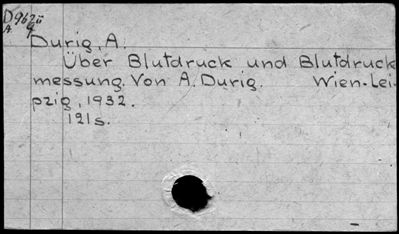 D962ü
A 4
Durig, A.
Über Blutdruck und Blutdruck
messung. Von A. Durig. Wien-Lei-
pzig, 1932.
121s.